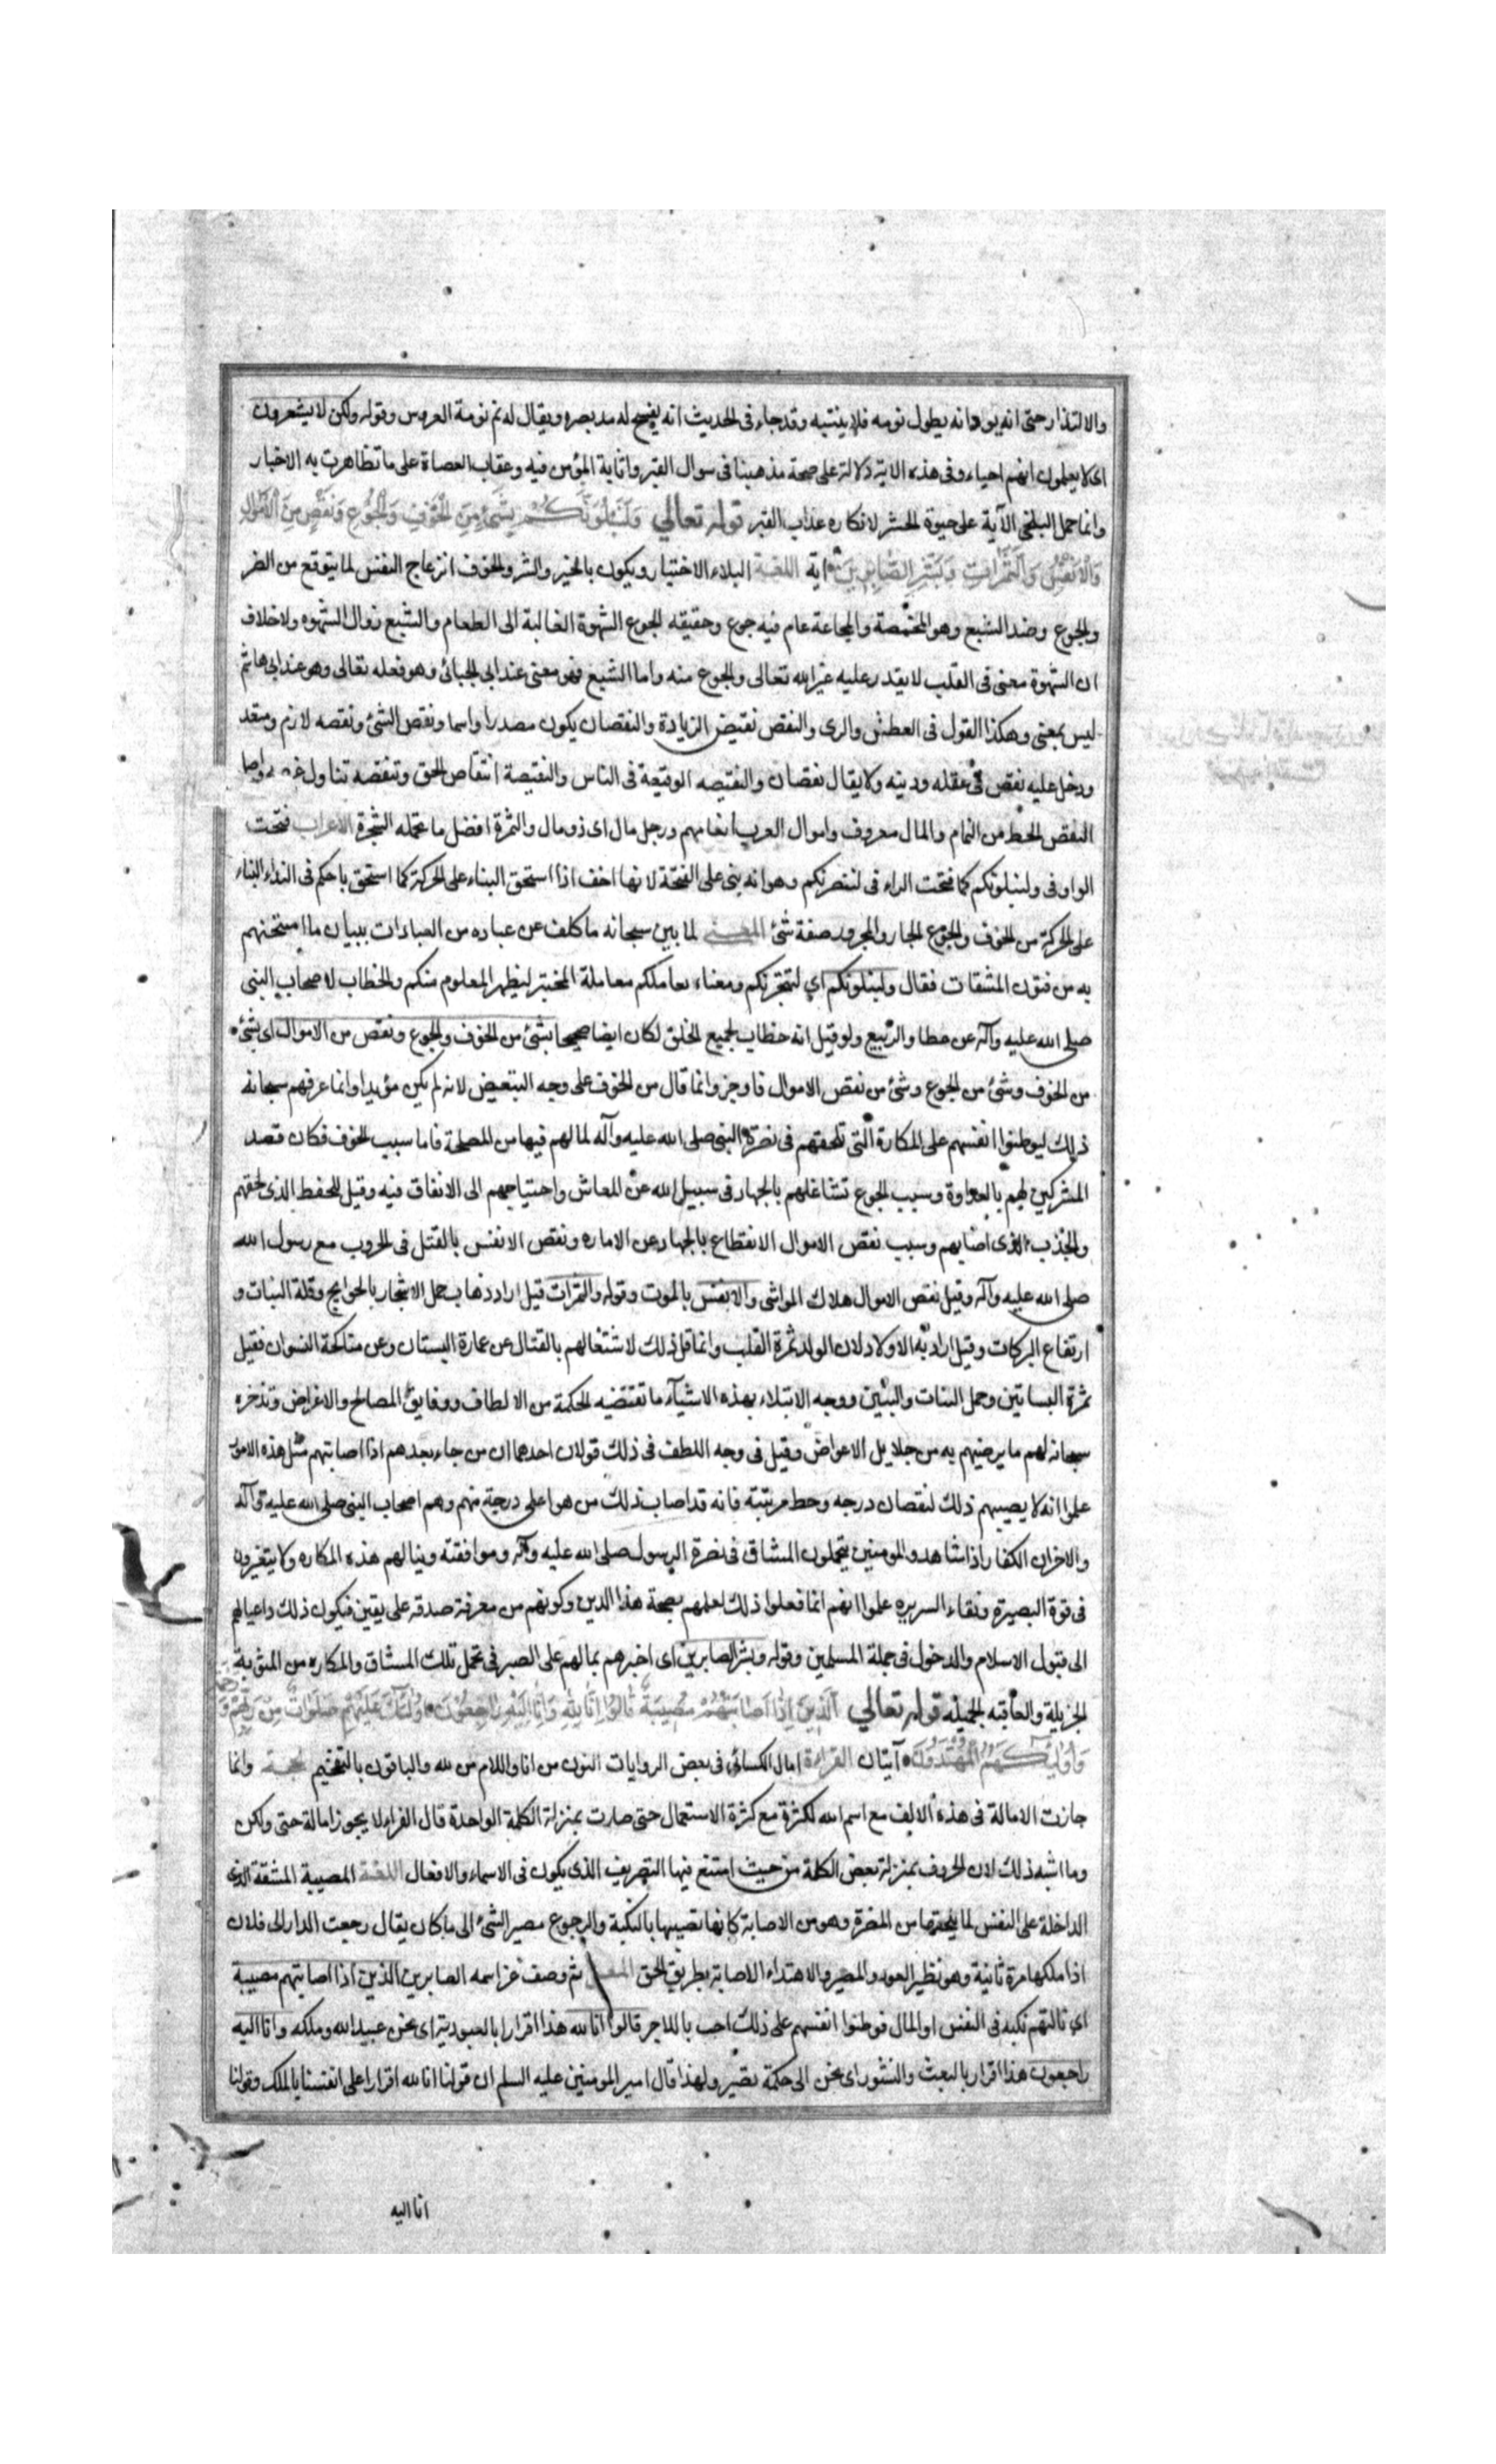 والالتذاذ حتى انه يوهم انه يطول نومه فلا ينتبه وقد جاء فى الحديث انه يفسح له مد بصره ويقال له نم نومة العروس وقوله ولكن لا يشعرون
اى لا يعلمون انهم احياء وفى هذه الاية دلالة على صحة مذهبنا فى سوال القبر واثابة المؤمن فيه وعقاب العصاة على ما تظاهرت به الاخبار
وانما حمل البلخى الآية على حيوة الحشر لانكاره عذاب القبر قوله تعالى وَلَنَبْلُوَنَّكُمْ بِشَىْءٍ مِنَ الْخَوْفِ وَالْجُوعِ وَنَقْصٍ مِنَ الْاَمْوَالِ
وَالْاَنْفُسِ وَالثَّمَرَاتِ وَبَشِّرِ الصَّابِرِينَ اية اللغة البلاء الاختبار ويكون بالخير والشر والخوف انزعاج النفس لما يتوقع من الضر
والجوع وضد الشبع وهو المخمصة والمجاعة عام فيه جوع وحقيقه الجوع الشهوة الغالبة الى الطعام والشبع زوال الشهوه ولا خلاف
ان الشهوة معنى فى القلب لا يقدر عليه غير الله تعالى والجوع منه واما الشبع فهو معنى عند ابى الجبائى وهو فعله تعالى وهو عند ابى هاشم
ليس بمعنى وهكذا القول فى العطش والرى والنقص نقيض الزيادة والنقصان يكون مصدرا واسما ونقص الشئ ونقصه لازم ومتعد
ودخل عليه نقص فى عقله ودينه ولا يقال نقصان والنقيصه الوقيعة فى الناس والنقيصة انتقاص الحق وتنقصه تناول عرضه واصل
النقص الحط من التمام والمال معروف واموال العرب انعامهم ورجل مال اى ذو مال والثمرة افضل ما تحمله الشجرة الاعراب فتحت
الواو فى ولنبلونكم كما فتحت الراء فى لننصرنكم وهو انه بنى على الفتحة لانها اخف اذا استحق البناء على الحركة كما استحق ياحكم فى النداء البناء
على الحركة من الخوف والجوع الجار والمجرور صفة شئ المعنى لما بين سبحانه ما كلف عن عباده من العبادات ببيان ما امتحنهم
به من فنون المشقات فقال ولنبلونكم اي لنختبرنكم ومعناه نعاملكم معاملة المختبر ليظهر المعلوم منكم والخطاب لاصحاب النبى
صلى الله عليه وآله عن عطا والربيع ولو قيل انه خطاب لجميع الخلق لكان ايضا صحيحا بشئ من الخوف والجوع ونقص من الاموال اى بشئ
من الخوف وشئ من الجوع وشئ من نقص الاموال فاوجز وانما قال من الخوف على وجه التبعيض لانه لم يكن مؤبدا وانما عرفهم سبحانه
ذلك ليوطنوا انفسهم على المكارة التى تلحقهم فى نصرة النبى صلى الله عليه وآله لما لهم فيها من المصلحة فاما سبب الخوف فكان قصد
المشركين لهم بالعداوة وسبب الجوع تشاغلهم بالجهاد فى سبيل الله عن المعاش واحتياجهم الى الانفاق فيه وقيل للقحط الذى لحقهم
والجذب الذى اصابهم وسبب نقص الاموال الانقطاع بالجهاد عن الاماره ونقص الانفس بالقتل فى الحروب مع رسول الله
صلى الله عليه وآله وقيل نقص الاموال هلاك المواشى والانفس بالموت وقوله والثمرات قيل اراد ذهاب حمل الاشجار بالجوايح وقلة النبات و
ارتفاع البركات وقيل اراد به الاولاد لان الولد ثمرة القلب وانما قل ذلك لاشتغالهم بالقتال عن عمارة البستان وعن مناكحة النسوان فقيل
ثمرة البساتين وحمل البنات والبنين ووجه الابتلاء بهذه الاشيآء ما تقتضيه الحكمة من الالطاف ودقايق المصالح والاغراض وتذخره
سبحانه لهم ما يرضيهم به من جلايل الاعواض وقيل فى وجه اللطف فى ذلك قولان احدهما ان من جاء بعدهم اذا اصابتهم مثل هذه الامور
علموا انه لا يصيبهم ذلك لنقصان درجه وحط مرتبته فانه قد اصاب ذلك من هو اعلى درجة منهم وهم اصحاب النبى صلى الله عليه وآله
والاخر ان الكفار اذا شاهدوا المومنين يتحملون المشاق فى نصرة الرسول صلى الله عليه وآله وموافقته وينالهم هذه المكاره ولا يتغيرون
فى قوة البصيرة ونقاء السريره علموا انهم انما فعلوا ذلك لعلمهم بصحة هذا الدين وكونهم من معرفة صدقه على يقين فيكون ذلك داعيا لهم
الى قبول الاسلام والدخول فى جملة المسلمين وقوله وبشر الصابرين اى اخبرهم بما لهم على الصبر فى تحمل تلك المشاق والمكاره من المثوبة
الجزيلة والعاقبه الجميله قوله تعالى اَلَّذِينَ اِذَا اَصَابَتْهُمْ مُصِيبَةٌ قَالُوا اِنَّا لِلّٰهِ وَاِنَّا اِلَيْهِ رَاجِعُونَ اُولٰئِكَ عَلَيْهِمْ صَلَوَاتٌ مِنْ رَبِّهِمْ وَرَحْمَةٌ
وَاُولٰئِكَ هُمُ الْمُهْتَدُونَ آيتان القراءة امال الكسائى فى بعض الروايات النون من انا واللام من لله والباقون بالتفخيم الحجة وانما
جازت الامالة فى هذه الالف مع اسم الله لكثرة مع كثرة الاستعمال حتى صارت بمنزلة الكلمة الواحدة قال الفراء لا يجوز امالة حتى ولكن
وما اشبه ذلك لان الحروف بمنزلة بعض الكلمة من حيث امتنع فيها التصريف الذى يكون فى الاسماء والافعال اللغة المصيبة المشقة
الداخلة على النفس لما يلحقها من المضرة وهو من الاصابة كانها تصيبها بالنكبة والرجوع مصير الشئ الى ما كان يقال رجعت الدار الى فلان
اذا ملكها مرة ثانية وهو نظير العود والمصير والاهتداء الاصابة بطريق الحق المعنى ثم وصف عز اسمه الصابرين الذين اذا اصابتهم مصيبة
اي نالتهم نكبه فى النفس او المال فوطنوا انفسهم على ذلك احتسابا للاجر قالوا انا لله هذا اقرارا بالعبودية اى نحن عبيد الله وملكه وانا اليه
راجعون هذا اقرار بالبعث والنشور اى نحن الى حكمة نصير ولهذا قال امير المومنين عليه السلم ان قولنا انا لله اقرار على انفسنا بالملك وقولنا
انا اليه